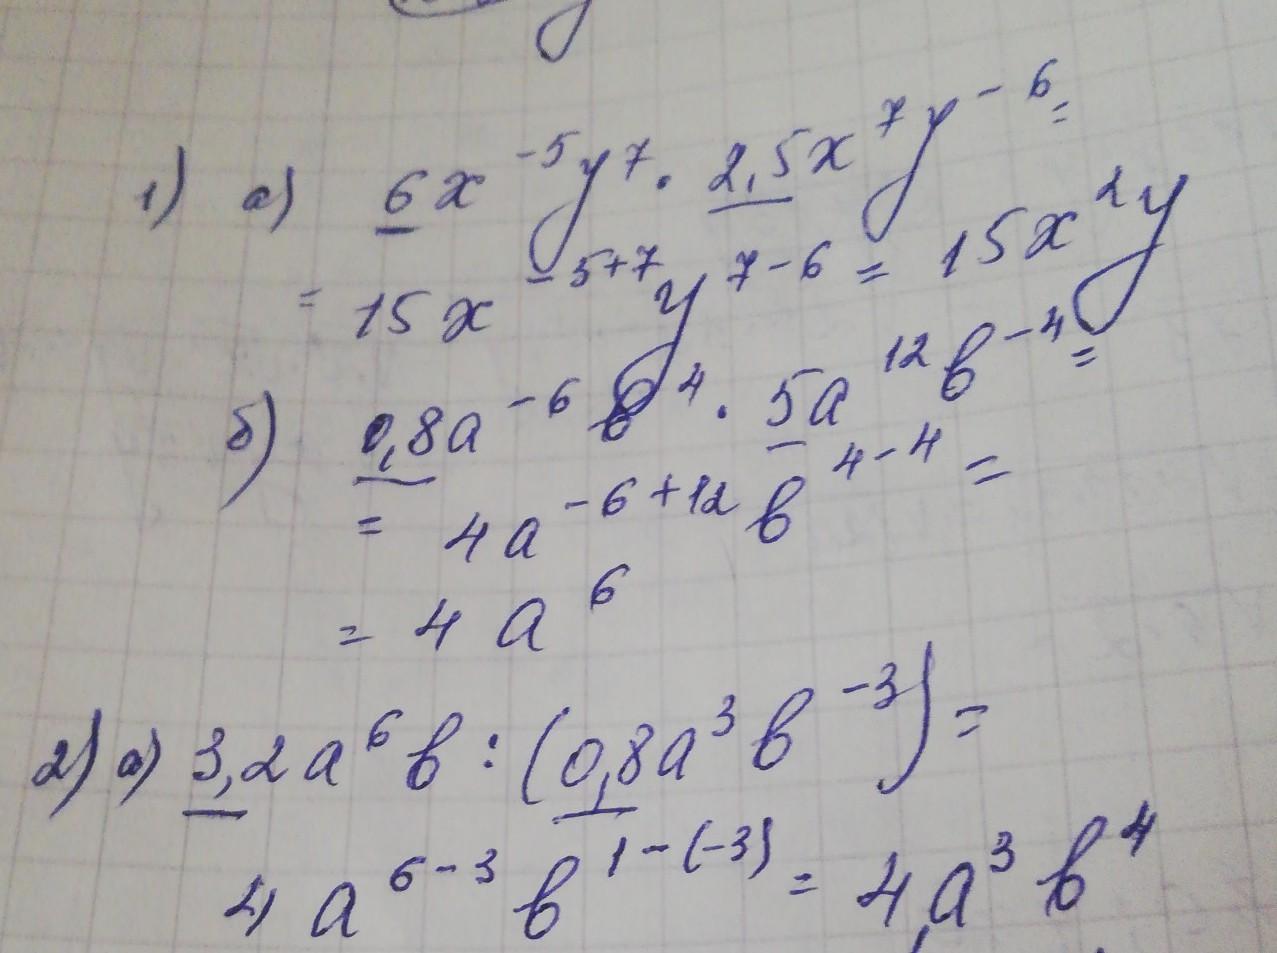 1) а) 6x⁻⁵y⁷ · 2,5x⁷y⁻⁶ =
= 15x⁻⁵⁺⁷y⁷⁻⁶ = 15x²y
б) 0,8a⁻⁶b⁴ · 5a¹²b⁻⁴ =
= 4a⁻⁶⁺¹²b⁴⁻⁴ =
= 4a⁶
2) а) 3,2a⁶b : (0,8a³b⁻³) =
4a⁶⁻³b¹⁻⁽⁻³⁾ = 4a³b⁴